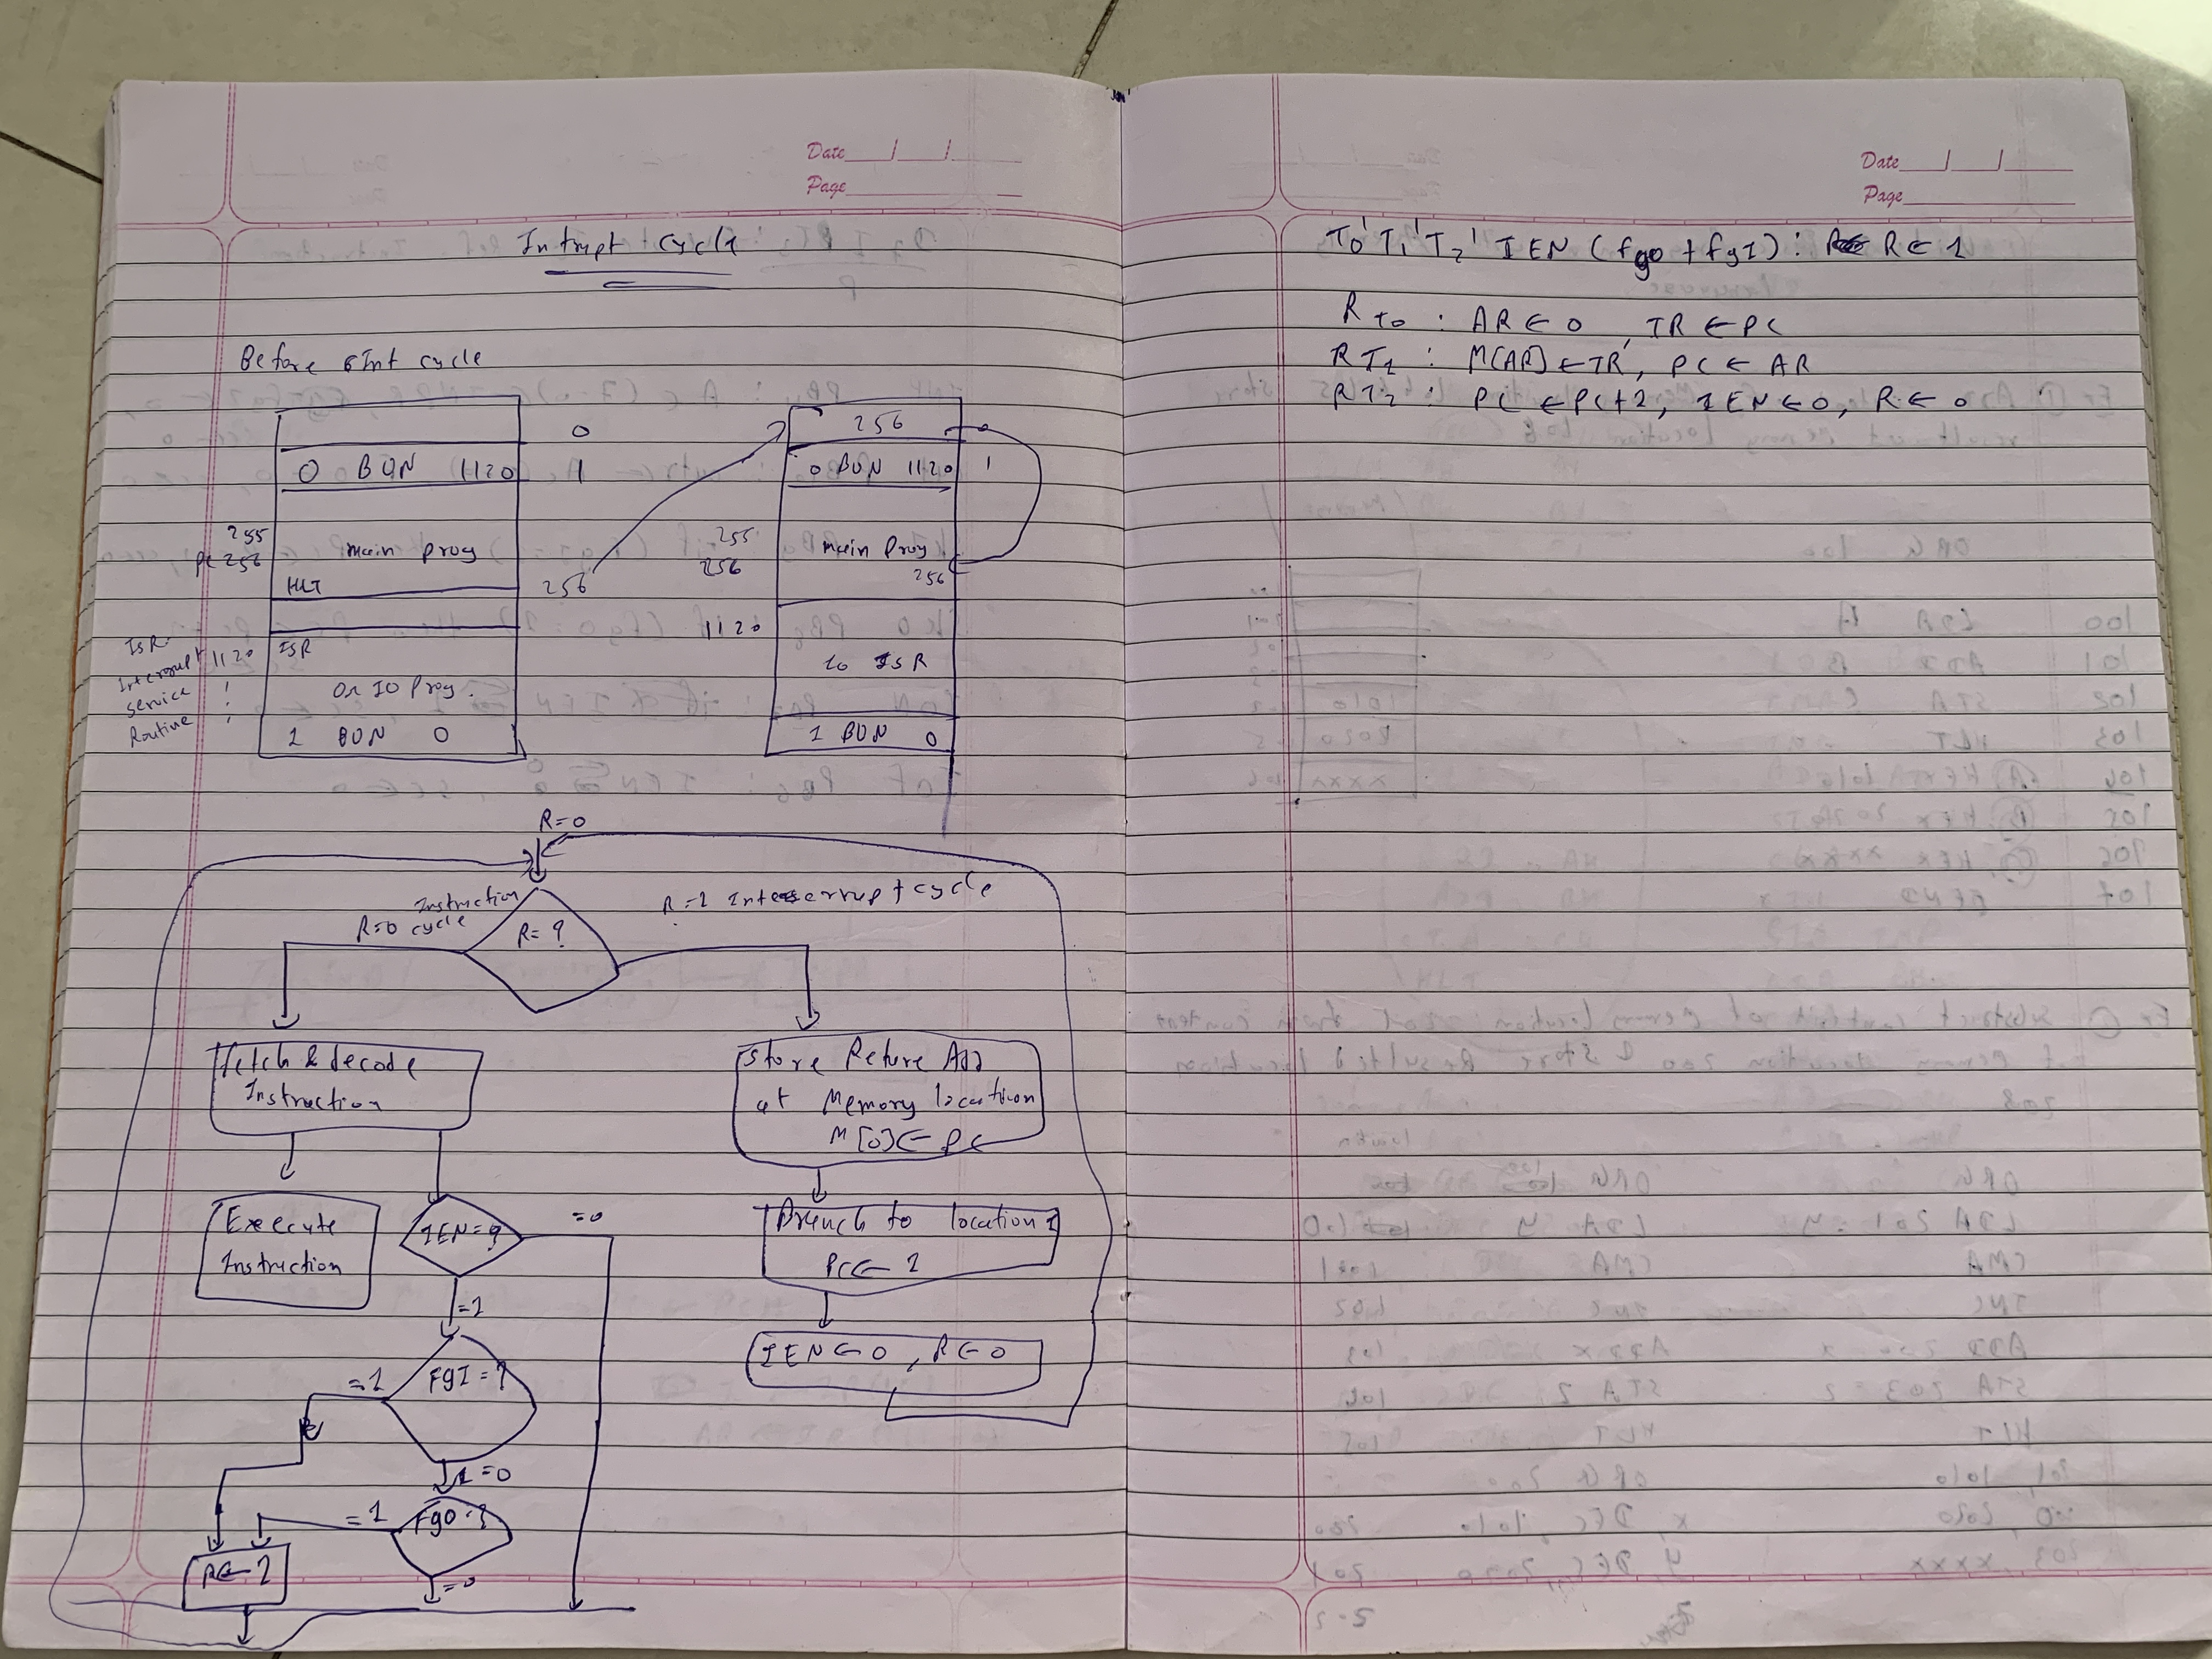 Date
Page
Intrupt cycle
Before Int cycle
0
0 BUN 1120 1
255
PC 256 main prog
HLT 256
ISR
Interrupt 1120 ISR
service
Routine
On IO Prog.
1 BUN 0
256 0
0 BUN 1120 1
255
256 main Prog
256
1120
to ISR
1 BUN 0
R=0
Instruction
R=0 cycle
R=?
R=1 Interrupt cycle
fetch & decode
Instruction
Execute
Instruction
IEN=?
=0
=1
FgI=?
=1
=0
FgO=?
=1
=0
R←1
Store Reture Add
at Memory location
M[0]← PC
Branch to location 1
PC← 1
IEN←0, R←0
Date
Page
T0' T1' T2' IEN (fgo + fgI) : R← R← 1
RT0 : AR← 0, TR←PC
RT1 : M[AR]←TR, PC← AR
RT2 : PC ←PC+1, IEN←0, R← 0